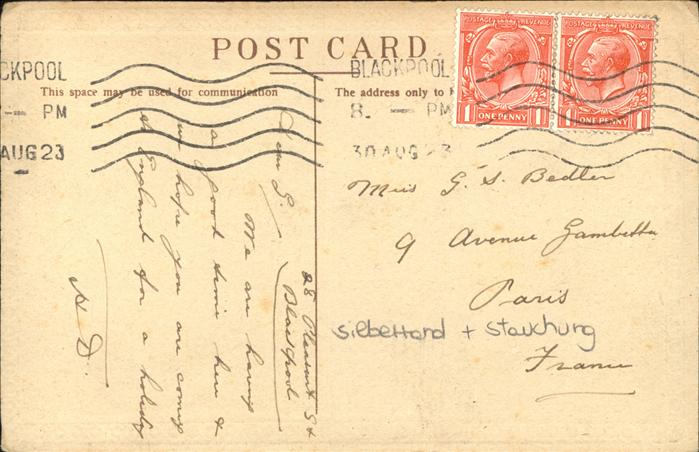 POST CARD
This space may be used for communication
The address only to
CKPOOL
PM
AUG 23
BLACKPOOL
8. PM
30 AUG 23
POSTAGE REVENUE
ONE PENNY
1 1
POSTAGE REVENUE
ONE PENNY
1 1
28 Pleasant St
Blackpool
Dear G.
We are having
a good time here &
we hope you are coming
to England for a holiday
H D.
Miss G. S. Bedler
9 Avenue Gambetta
Paris
Silberrand + Stauchung
France